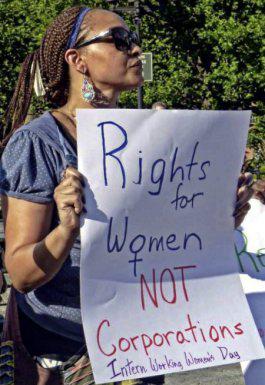 Rights
for
Women
NOT
Corporations
Intern Working Women's Day